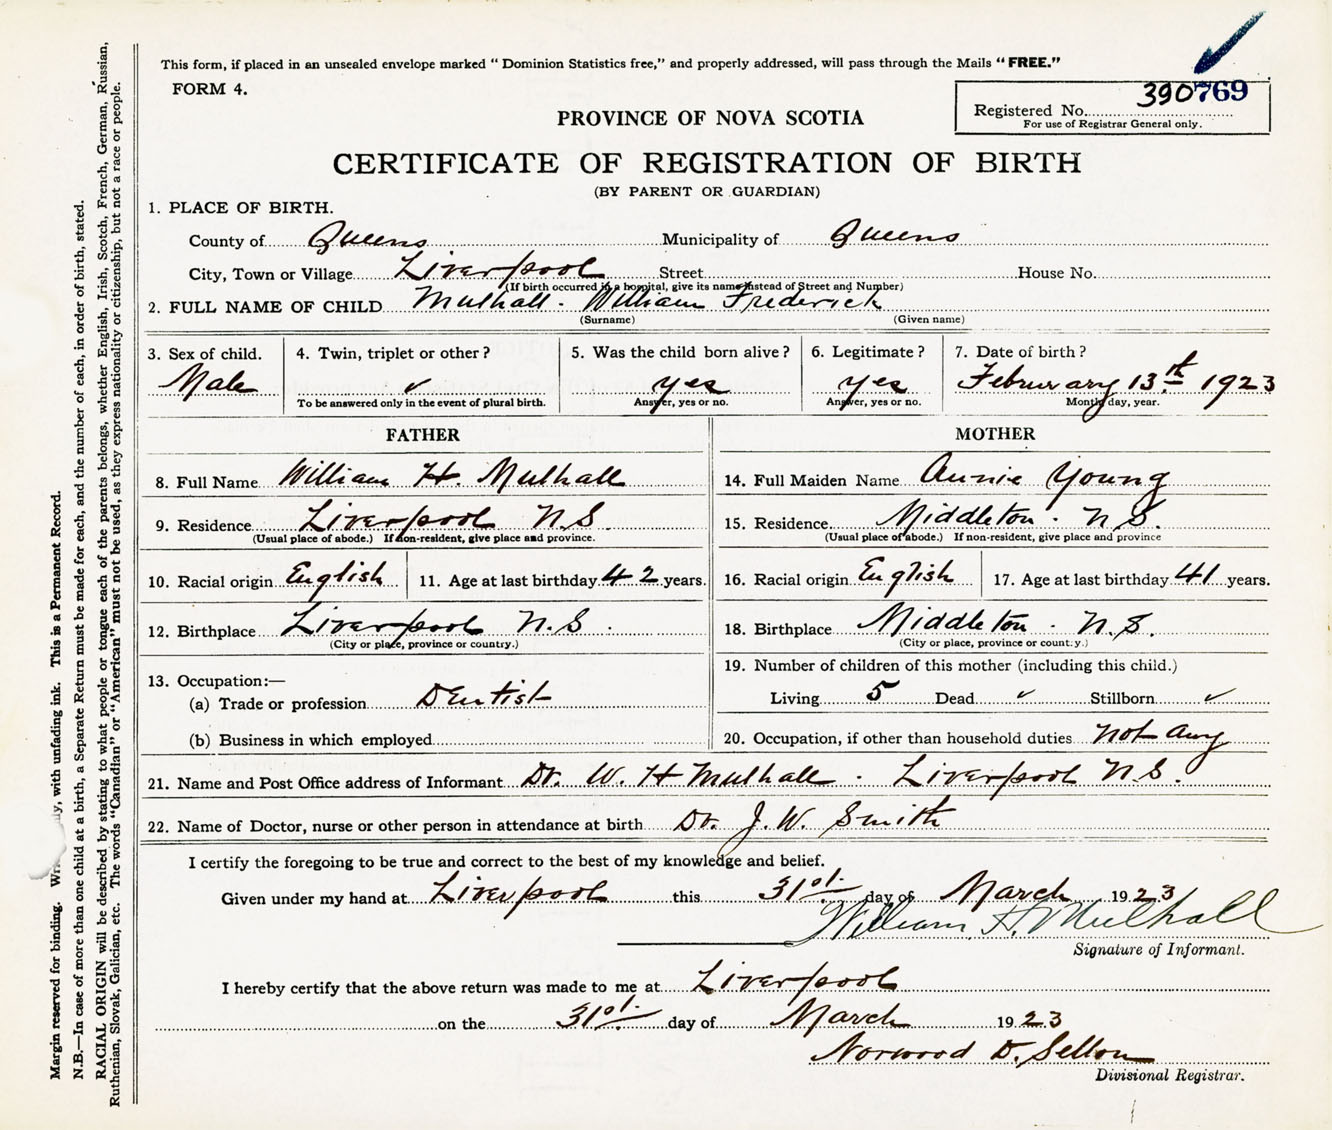 This form, if placed in an unsealed envelope marked “ Dominion Statistics free,” and properly addressed, will pass through the Mails “ FREE.”
FORM 4.
Registered No. 390769
For use of Registrar General only.
PROVINCE OF NOVA SCOTIA
CERTIFICATE OF REGISTRATION OF BIRTH
(BY PARENT OR GUARDIAN)
1. PLACE OF BIRTH.
County of Queens Municipality of Queens
City, Town or Village Liverpool Street House No.
(If birth occurred in a hospital, give its name instead of Street and Number)
2. FULL NAME OF CHILD Mulhall - William Frederick
(Surname) (Given name)
3. Sex of child. 4. Twin, triplet or other ? 5. Was the child born alive ? 6. Legitimate ? 7. Date of birth ?
Male ✓ yes yes February 13th 1923
To be answered only in the event of plural birth. Answer, yes or no. Answer, yes or no. Month, day, year.
FATHER MOTHER
8. Full Name William H. Mulhall 14. Full Maiden Name Annie Young
9. Residence Liverpool N.S. 15. Residence Middleton - N.S.
(Usual place of abode.) If non-resident, give place and province. (Usual place of abode.) If non-resident, give place and province
10. Racial origin English 11. Age at last birthday 42 years. 16. Racial origin English 17. Age at last birthday 41 years.
12. Birthplace Liverpool N.S. 18. Birthplace Middleton - N.S.
(City or place, province or country.) (City or place, province or country.)
19. Number of children of this mother (including this child.)
13. Occupation:—
(a) Trade or profession Dentist Living 5 Dead ✓ Stillborn ✓
(b) Business in which employed 20. Occupation, if other than household duties not any
21. Name and Post Office address of Informant Dr. W. H Mulhall - Liverpool N.S.
22. Name of Doctor, nurse or other person in attendance at birth Dr. J. W. Smith
I certify the foregoing to be true and correct to the best of my knowledge and belief.
Given under my hand at Liverpool this 31st day of March 1923
William H. Mulhall
Signature of Informant.
I hereby certify that the above return was made to me at Liverpool
on the 31st day of March 1923
Norwood D. Sellon
Divisional Registrar.
Margin reserved for binding. with unfading ink. This is a Permanent Record.
N.B.—In case of more than one child at a birth, a Separate Return must be made for each, and the number of each, in order of birth, stated.
RACIAL ORIGIN will be described by stating to what people or tongue each of the parents belongs, whether English, Irish, Scotch, French, German, Russian,
Ruthenian, Slovak, Galician, etc. The words “Canadian” or “American” must not be used, as they express nationality or citizenship, but not a race or people.